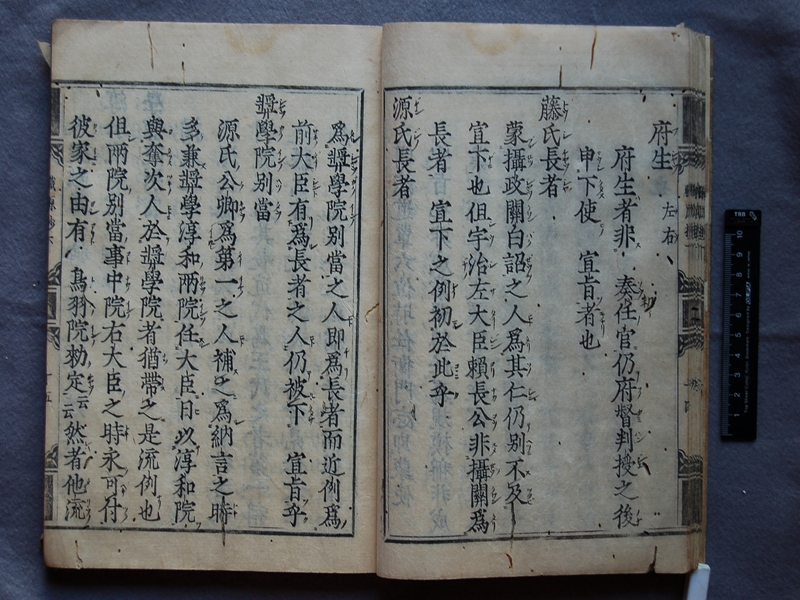 府生 左右
府生者非 奏任官仍府督判授之後
申下使 宣旨者也
藤氏長者
蒙攝政關白詔之人爲其仁仍別不及
宣下也但宇治左大臣賴長公非攝關爲
長者 宣下之例初於此乎
源氏長者
爲奬學院別當之人即爲長者而近例爲
前大臣有爲長者之人仍被下 宣旨乎
奬學院別當
源氏公卿爲第一之人補之爲納言之時
多兼奬學淳和兩院任大臣日以淳和院
與奪次人於奬學院者猶帶之是流例也
但兩院別當事中院右大臣之時永可付
彼家之由有 鳥羽院勅定云云然者他流